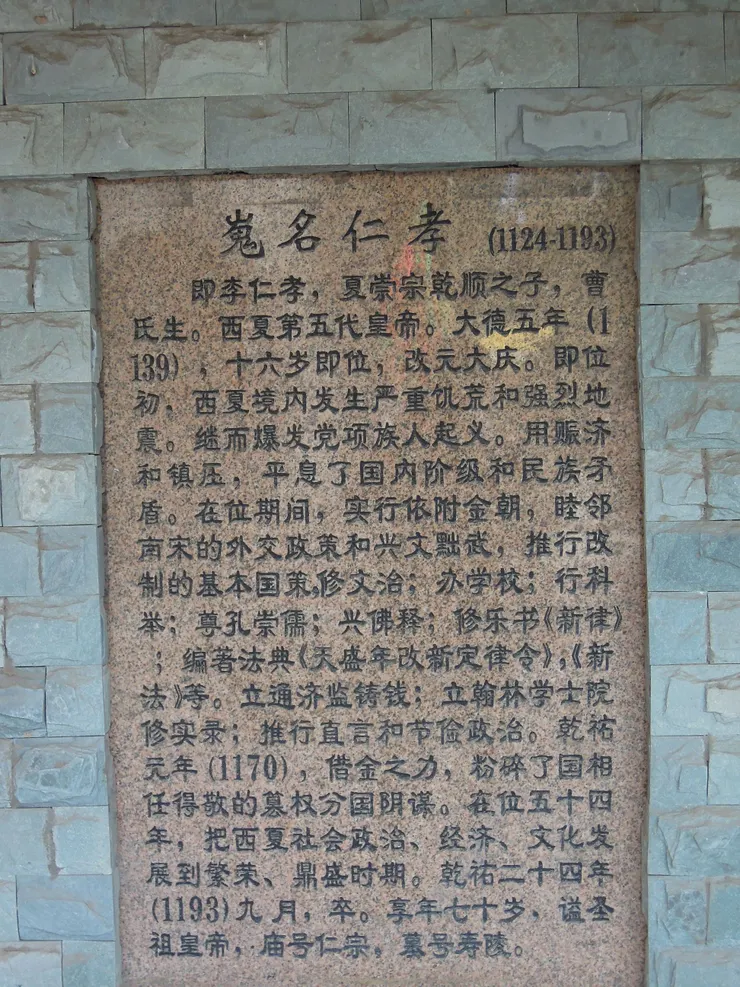 嵬名仁孝 (1124-1193)
即李仁孝，夏崇宗乾顺之子，曹
氏生。西夏第五代皇帝。大德五年 (1
139) ，十六岁即位，改元大庆。即位
初，西夏境内发生严重饥荒和强烈地
震。继而爆发党项族人起义。用赈济
和镇压，平息了国内阶级和民族矛
盾。在位期间，实行依附金朝，睦邻
南宋的外交政策和兴文黜武，推行改
制的基本国策,修文治；办学校；行科
举；尊孔崇儒；兴佛释；修乐书《新律》
；编著法典《天盛年改新定律令》,《新
法》等。立通济监铸钱；立翰林学士院
修实录；推行直言和节俭政治。乾祐
元年 (1170) ，借金之力，粉碎了国相
任得敬的墓权分国阴谋。在位五十四
年，把西夏社会政治、经济、文化发
展到繁荣、鼎盛时期。乾祐二十四年
(1193) 九月，卒。享年七十岁、谥圣
祖皇帝，庙号仁宗，墓号寿陵。